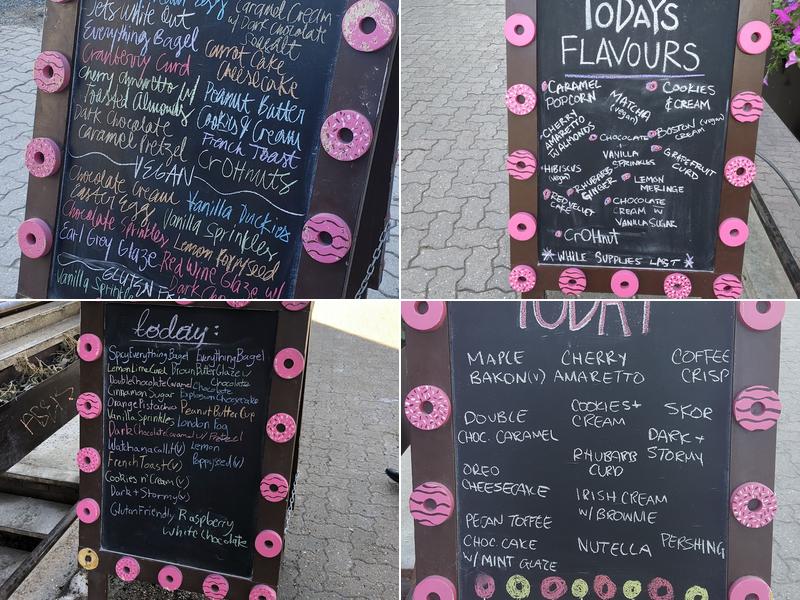 Jets While Out
Everything Bagel
Cranberry Curd
Cherry Amaretto w/
Toasted Almonds
Dark Chocolate
Caramel Pretzel
Caramel Cream
w/ Dark Chocolate
Sea Salt
Carrot Cake
Cheesecake
Peanut Butter
Cookies & Cream
French Toast
CrOHnuts
VEGAN
Chocolate Cream
Easter Eggs
Vanilla Duckies
Chocolate Sprinkles
Vanilla Sprinkles
Earl Grey Glaze
Lemon Poppyseed
Red Wine Glaze w/
GLUTEN FR
Vanilla Sprinkl
Dark Choc
TODAYS
FLAVOURS
CARAMEL
POPCORN
MATCHA
(vegan)
COOKIES
&CREAM
CHERRY
AMARETTO
W/ALMONDS
CHOCOLATE
BOSTON (vegan)
CREAM
VANILLA
SPRINKLES
GRAPEFRUIT
CURD
HIBISCUS
(vegan)
RHUBARB
GINGER
LEMON
MERINGE
RED VELVET
CAKE
CHOCOLATE
CREAM W
VANILLA SUGAR
CrOHnut
* WHILE SUPPLIES LAST *
today:
Spicy Everything Bagel Everything Bagel
Lemon Lime Curd Brown Butter Glaze
Double Chocolate Caramel Chocolate
Cinnamon Sugar Chocolate
Explosion Cheesecake
Orange Pistachio Peanut Butter Cup
Vanilla Sprinkles London Fog
Dark Chocolate Caramel w/ Pretzel
Watchamacallit(v) Lemon
Poppyseed(v)
French Toast(v)
Cookies n' Cream(v)
Dark + Stormy(v)
Gluten Friendly Raspberry
White Chocolate
TODAY
MAPLE
BAKON(V)
CHERRY
AMARETTO
COFFEE
CRISP
DOUBLE
CHOC. CARAMEL
COOKIES+
CREAM
SKOR
DARK +
STORMY
RHUBARB
CURD
OREO
CHEESECAKE
IRISH CREAM
W/ BROWNIE
PECAN TOFFEE
CHOC. CAKE
W/ MINT GLAZE
NUTELLA
PERSHING